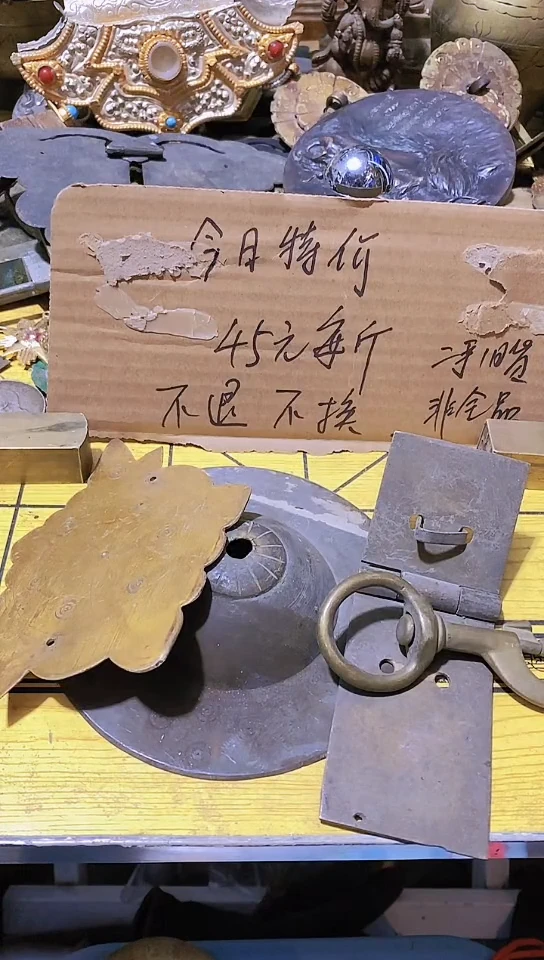 今日特价
45元每斤
不退 不换
非全品